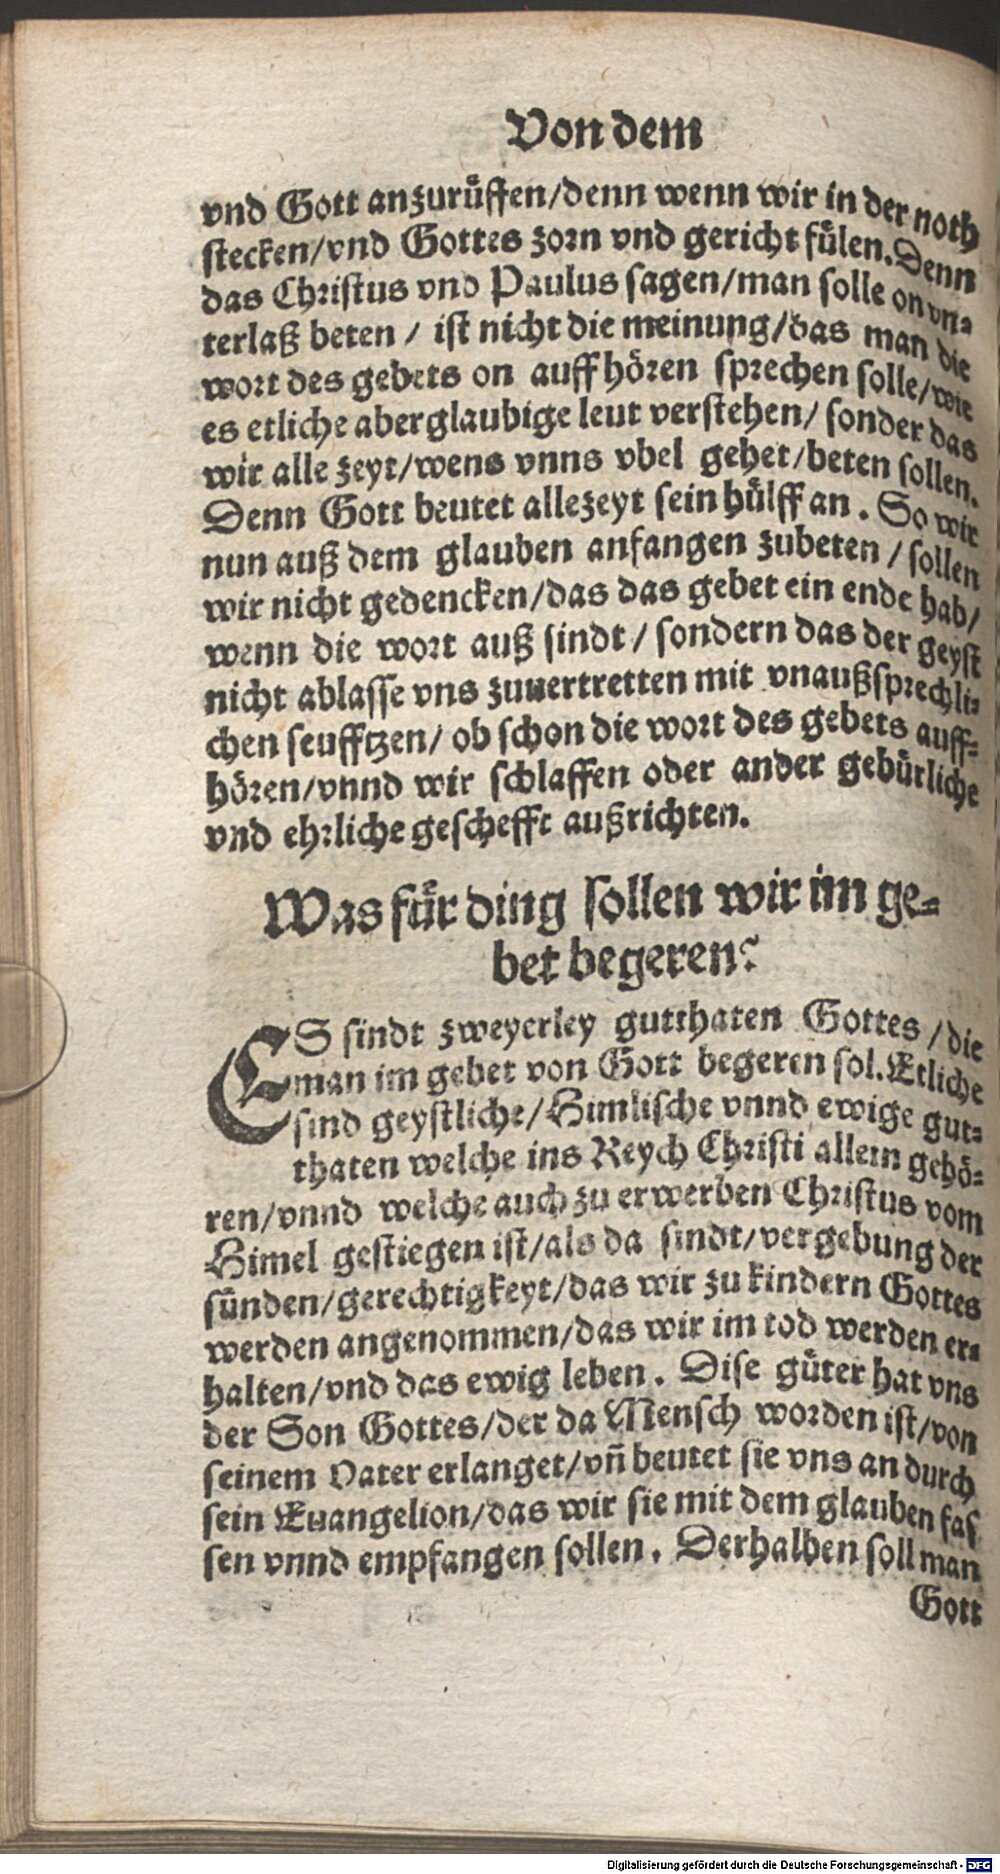 Von dem
vnd Gott anzurůffen/denn wenn wir in der noth
stecken/vnd Gottes zorn vnd gericht fülen. Denn
das Christus vnd Paulus sagen/man solle on vn⸗
terlaß beten / ist nicht die meinung/das man die
wort des gebets on auffhören sprechen solle/wie
es etliche aberglaubige leut verstehen/ sonder das
wir alle zeyt/wens vnns vbel gehet/beten sollen.
Denn Gott beutet allezeyt sein hülff an . So wir
nun auß dem glauben anfangen zubeten / sollen
wir nicht gedencken/das das gebet ein ende hab/
wenn die wort auß sindt / sondern das der geyst
nicht ablasse vns zuuertretten mit vnaußsprechli⸗
chen seufftzen/ ob schon die wort des gebets auff⸗
hören/vnnd wir schlaffen oder ander gebürliche
vnd ehrliche gescheffte außrichten.
Was für ding sollen wir im ge⸗
bet begeren?
ES sindt zweyerley gutthaten Gottes /die
man im gebet von Gott begeren sol. Etliche
sind geystliche/Himlische vnnd ewige gut⸗
thaten welche ins Reych Christi allein gehö⸗
ren/vnnd welche auch zu erwerben Christus vom
Himel gestiegen ist/als da sindt/vergebung der
sünden/gerechtigkeyt/das wir zu kindern Gottes
werden angenommen/das wir im tod werden er⸗
halten/vnd das ewig leben . Dise güter hat vns
der Son Gottes/der da Mensch worden ist/von
seinem Vater erlanget/vñ beutet sie vns an durch
sein Euangelion/das wir sie mit dem glauben fas
sen vnnd empfangen sollen . Derhalben soll man
Gott
Digitalisierung gefördert durch die Deutsche Forschungsgemeinschaft - DFG